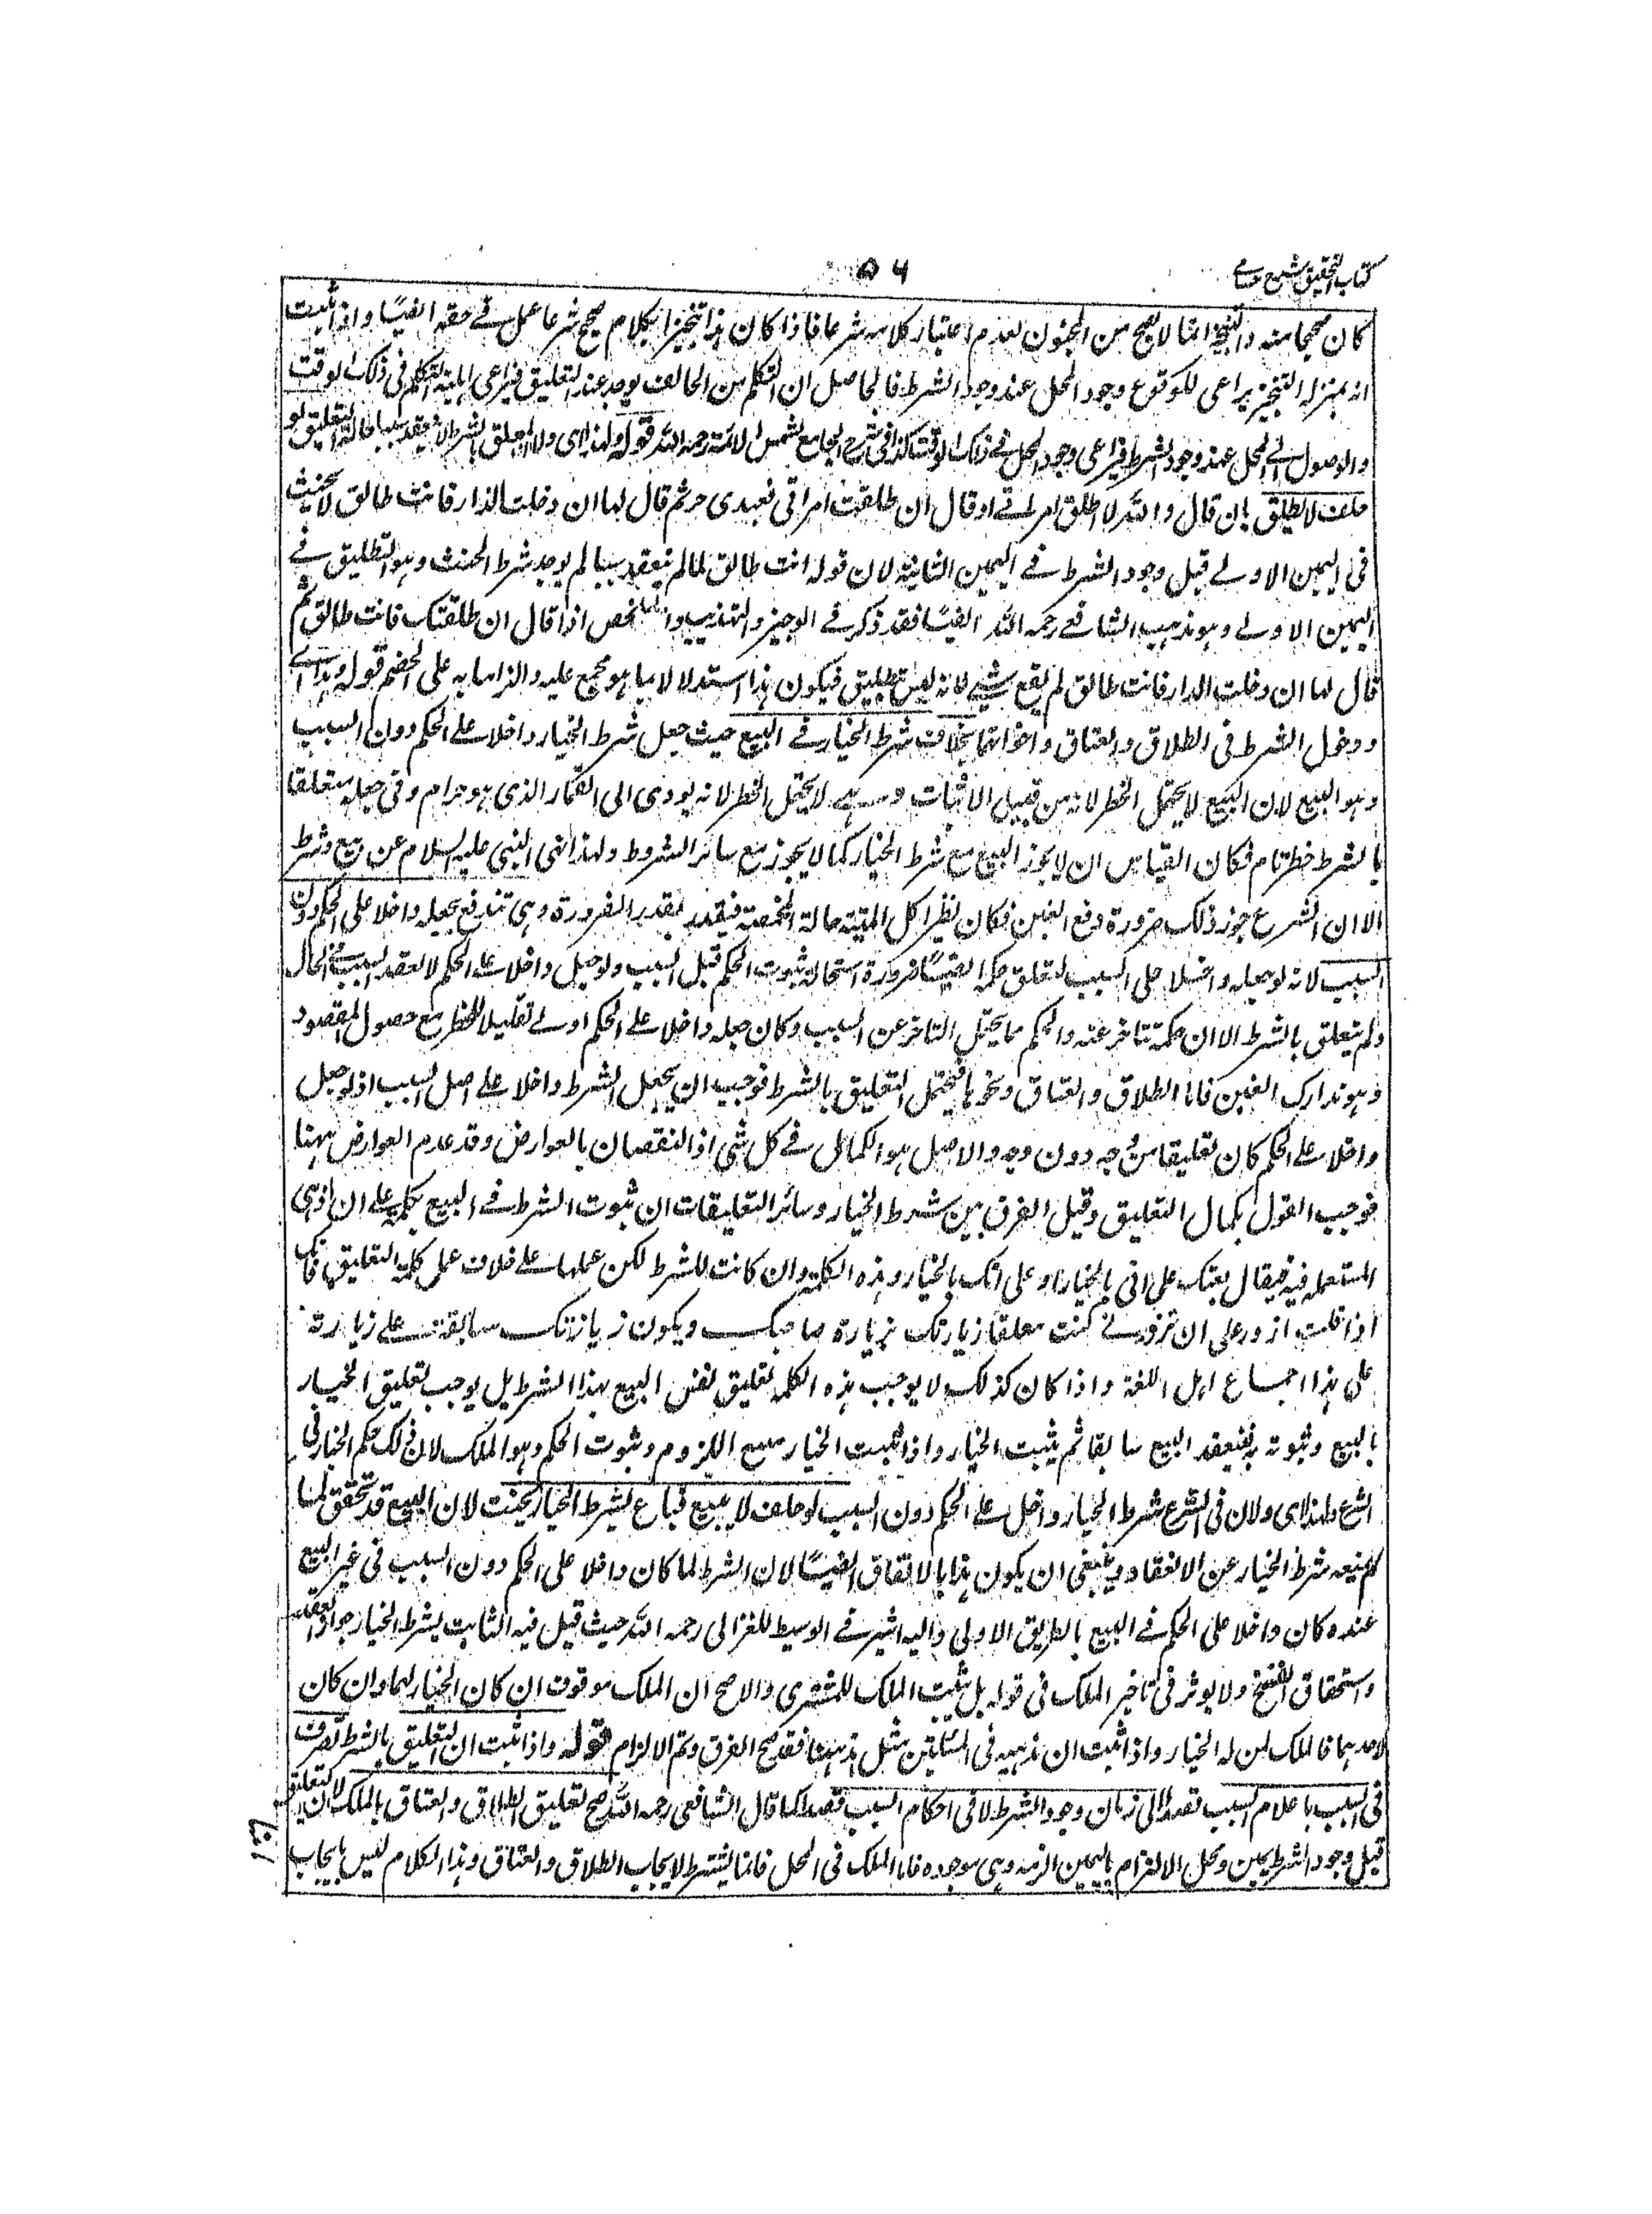 كتاب التحقيق شرح حسامي
٥٦
كان صحيحا منه والتنجيز انما لا يصح من المجنون لعدم اعتبار كلامه شرعا فاذا كان هذا تنجيزا بكلام صحيح شرعا عمل في حقه ايضا واذا ثبت
انه بمنزلة التنجيز يراعى للوقوع وجود المحل عند وجود الشرط فالحاصل ان التكلم من الحالف يوجد عند التعليق فيراعى اهلية التكلم في ذلك الوقت
والوصول الى المحل عند وجود الشرط فيراعى وجود المحل في ذلك الوقت كذا في شرح الجامع لشمس الائمة رحمه الله قوله ولهذا اى ولان المعلق بالشرط لا ينعقد سببا حالة التعليق لو
حلف لا يطلق بان قال والله لا اطلق امرأتي او قال ان طلقت امرأتي فعبدى حر ثم قال لها ان دخلت الدار فانت طالق لا يحنث
في اليمين الاولى قبل وجود الشرط في اليمين الثانية لان قوله انت طالق لما لم ينعقد سببا لم يوجد شرط الحنث وهو التطليق في
اليمين الاولى وهو مذهب الشافعي رحمه الله ايضا فقد ذكر في الوجيز والتهذيب والملخص اذا قال ان طلقتك فانت طالق ثم
قال لها ان دخلت الدار فانت طالق لم يقع شيء لانه ليس بتطليق فيكون هذا استدلالا بما هو مجمع عليه والزاما به على الخصم قوله وهذا اي
ودخول الشرط في الطلاق والعتاق واخواتهما بخلاف شرط الخيار في البيع حيث جعل شرط الخيار داخلا على الحكم دون السبب
وهو البيع لان البيع لا يحتمل الخطر لانه من قبيل الاثبات وهي لا يحتمل الخطر لانه يودى الى القمار الذي هو حرام وفي جعله متعلقا
بالشرط خطر تام فكان القياس ان لا يجوز البيع مع شرط الخيار كما لا يجوز مع سائر الشروط ولهذا نهى النبي عليه السلام عن بيع وشرط
الا ان الشرع جوز ذلك ضرورة دفع الغبن فكان نظير اكل الميتة حالة المخمصة فيقدر بقدر الضرورة وهي تندفع بجعله داخلا على الحكم دون
السبب لانه لو جعله داخلا على السبب لتعلق حكمه ايضا ضرورة استحالة ثبوت الحكم قبل السبب ولو جعل داخلا على الحكم لانعقد السبب في الحال
ولم يتعلق بالشرط الا ان حكمه تتاخر عنه والحكم مما يحتمل التاخر عن السبب وكان جعله داخلا على الحكم اولى تقليلا للخطر مع حصول المقصود
وهو تدارك الغبن فاما الطلاق والعتاق ونحوهما فيحتمل التعليق بالشرط فوجب ان يجعل الشرط داخلا على اصل السبب اذ لو جعل
داخلا على الحكم كان تعليقا من وجه دون وجه والاصل هو الكمال في كل شيء اذ النقصان بالعوارض وقد عدم العوارض ههنا
فوجب القول بكمال التعليق وقيل الفرق بين شرط الخيار وسائر التعليقات ان ثبوت الشرط في البيع بكلمة على ان اذ هي
المستعملة فيه فيقال بعتك على اني بالخيار او على انك بالخيار وهذه الكلمة وان كانت للشرط لكن عملها على خلاف عمل كلمة التعليق فانك
اذا قلت ازور على ان تزورني كنت معلقا زيارتك بزيارة صاحبك ويكون زيارتك سابقة على زيارته
على هذا اجماع اهل اللغة واذا كان كذلك لا يوجب هذه الكلمة تعليق نفس البيع بهذا الشرط بل يوجب تعليق الخيار
بالبيع وثبوته به فينعقد البيع سابقا ثم يثبت الخيار واذا ثبت الخيار يمنع اللزوم وثبوت الحكم وهو الملك لان ذلك حكم الخيار في
الشرع ولهذا اى ولان في الشرع شرط الخيار داخل على الحكم دون السبب لو حلف لا يبيع فباع بشرط الخيار يحنث لان البيع قد تحقق لما
لم يمنعه شرط الخيار عن الانعقاد وينبغي ان يكون هذا بالاتفاق ايضا لان الشرط لما كان داخلا على الحكم دون السبب في غير البيع
عنده كان داخلا على الحكم في البيع بالطريق الاولى واليه اشير في الوسيط للغزالي رحمه الله حيث قيل فيه الثابت بشرط الخيار جواز العقد
واستحقاق الفسخ ولا يوثر في تاخير الملك في قوله بل يثبت الملك للمشترى والاصح ان الملك موقوف ان كان الخيار لهما وان كان
لاحدهما فالملك لمن له الخيار واذا ثبت ان مذهبه في المسئلتين مثل مذهبنا فقد صح الفرق وتم الالزام قوله واذا ثبت ان التعليق بالشرط تصرف
في السبب باعدام السبب قصدا الى زمان وجود الشرط لا في احكام السبب قصدا كما قال الشافعي رحمه الله صح تعليق الطلاق والعتاق بالملك لان التعليق
قبل وجود الشرط يمين ومحل الالتزام باليمين الذمة وهي موجودة فاما الملك في المحل فانما يشترط لايجاب الطلاق والعتاق وهذا الكلام ليس بايجاب